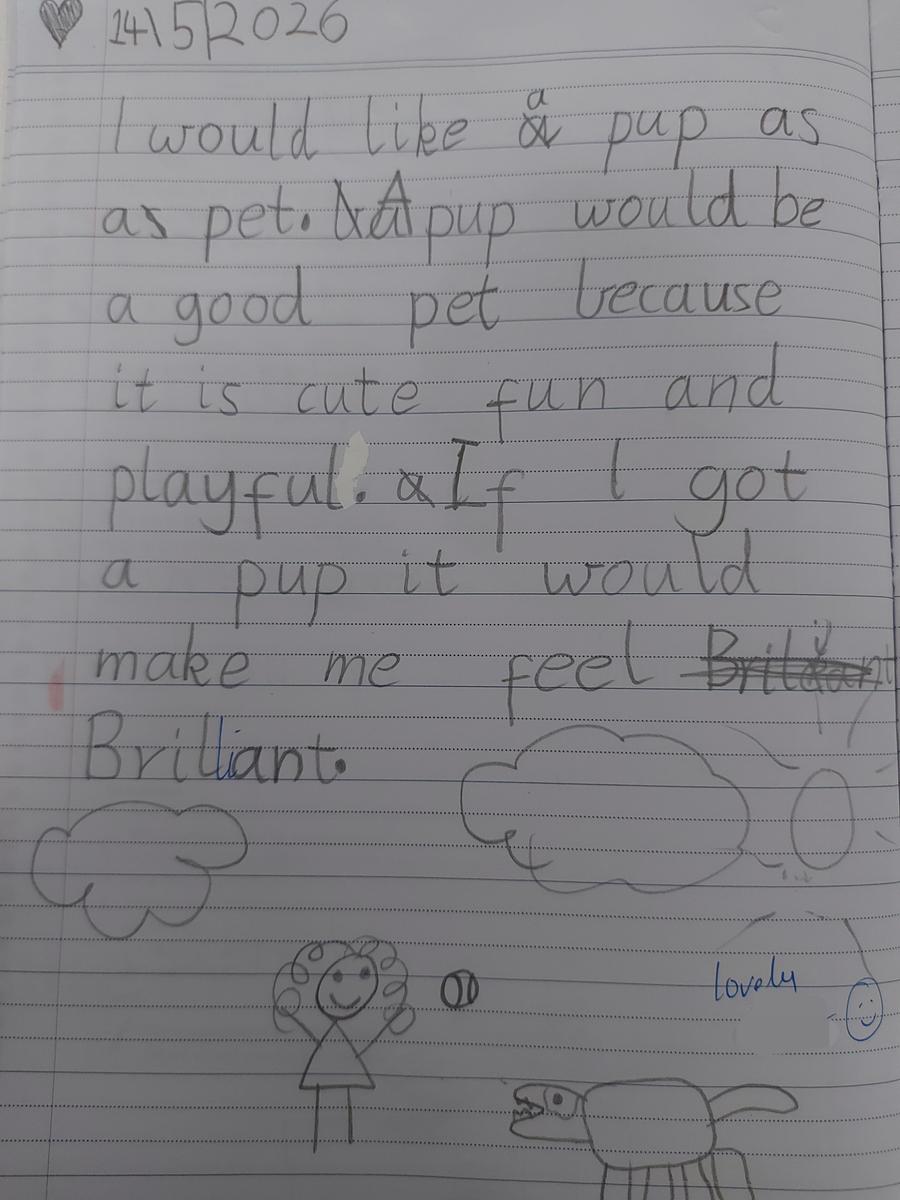 14\5|2026
I would like a pup as
as pet. A pup would be
a good pet because
it is cute fun and
playful. If I got
a pup it would
make me feel
Brilliant.
lovely